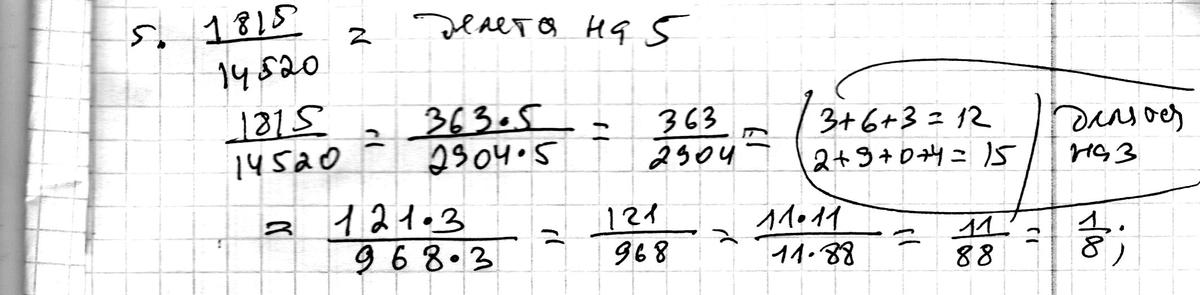 5. 1815/14520 = делется на 5
1815/14520 = 363·5/2904·5 = 363/2904 = (3+6+3=12 2+9+0+4=15) делятся на 3
= 121·3/968·3 = 121/968 = 11·11/11·88 = 11/88 = 1/8;